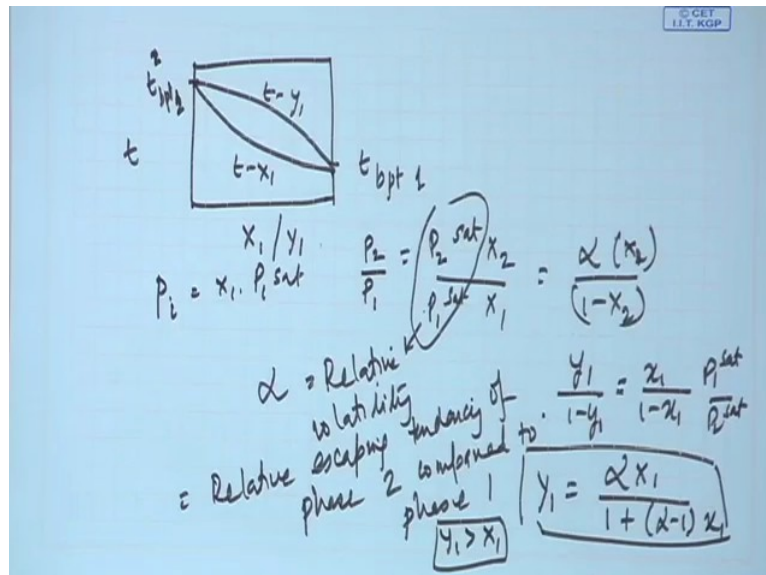 © CET
I.I.T. KGP
2
t bpt 2
t - y₁
t
t - x₁
t bpt 1
x₁ / y₁
Pᵢ = xᵢ. Pᵢ sat
P₂/P₁ = P₂ sat x₂ / P₁ sat x₁ = α (x₂) / (1-x₂)
α = Relative
volatility
= Relative escaping tendency of
phase 2 compared to
phase 1
y₁/1-y₁ = x₁/1-x₁ P₁ sat/P₂ sat
y₁ > x₁
y₁ = α x₁ / 1 + (α-1) x₁